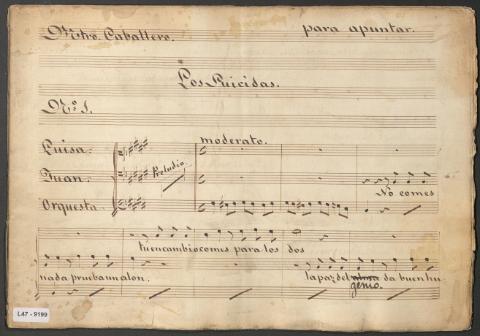 Mtro. Caballero.
para apuntar.
Los Suicidas.
Nº 1.
moderato.
Luisa.
Juan.
Preludio
Orquesta.
No comes
tu en cambio comes para los dos
nada prueba un alon.
la paz del alma da buen hu
genio.
L47 - 9199